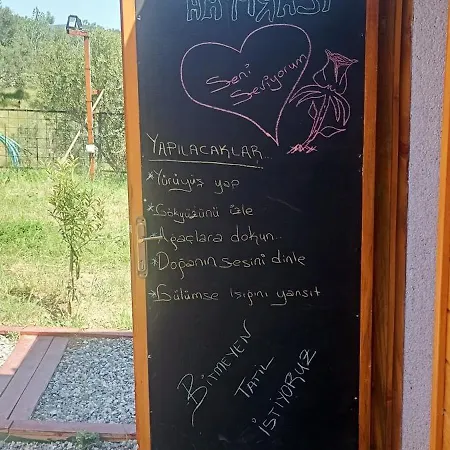 HATIRASI
Seni
Seviyorum
YAPILACAKLAR...
*Yürüyüş yap
*Gökyüzünü izle
*Ağaçlara dokun...
*Doğanın sesini dinle
*Gülümse ışığını yansıt
BİTMEYEN
TATİL
İSTİYORUZ